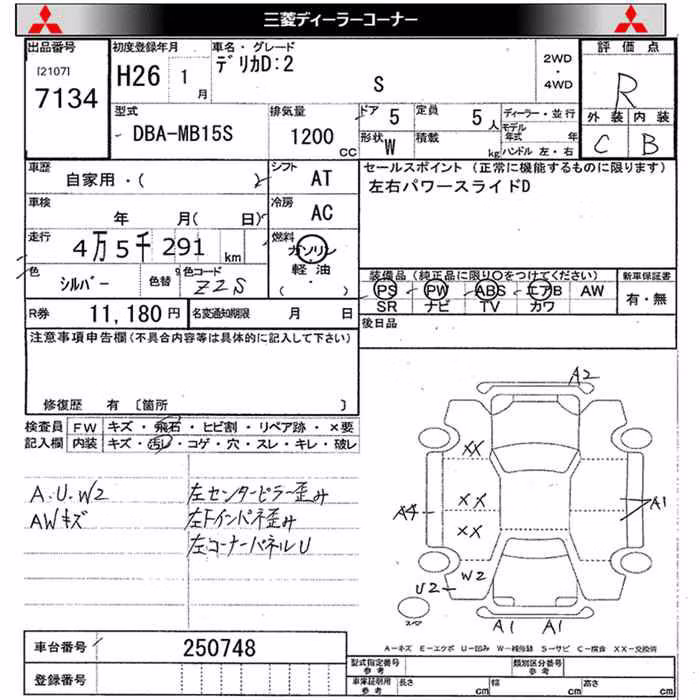 三菱ディーラーコーナー
出品番号 初度登録年月 車名・グレード 評価点
[2107] 7134 H26 1月 デリカD:2 S 2WD・4WD R
外装 内装
C B
型式 排気量 ドア 5 定員 5人 ディーラー・並行
DBA-MB15S 1200cc 形状 W 積載 kg モデル年式 年
ハンドル 左・右
車歴 シフト セールスポイント (正常に機能するものに限ります)
自家用・( ) AT 左右パワースライドD
車検 冷房
年 月( 日) AC
走行 燃料
4万5千291km ガソリン
軽油
( )
色 9 色コード 装備品(純正品に限り○をつけてください) 新車保証書
シルバー 色替 ZZS PS PW ABS エアB AW 有・無
SR ナビ TV カワ
R券 11,180円 名変通知期限 月 日 後日品
注意事項申告欄(不具合内容等は具体的に記入して下さい)
修復歴 有 〔箇所 〕
検査員 FW キズ・飛石・ヒビ割・リペア跡・×要
記入欄 内装 キズ・汚レ・コゲ・穴・スレ・キレ・破レ
A2
XX
A.U.W2 左センターピラー歪み
XX
A4 A1
AWキズ 左Fインパネ歪み
XX
左コーナーパネルU
W2
U2
スペア
A1 A1
A-キズ E-エクボ U-凹み W-補修跡 S-サビ C-腐食 XX-交換済
車台番号 250748
登録番号
型式指定番号 参考 類別区分番号 参考
車庫証明用 参考 長さ cm 幅 cm 高さ cm